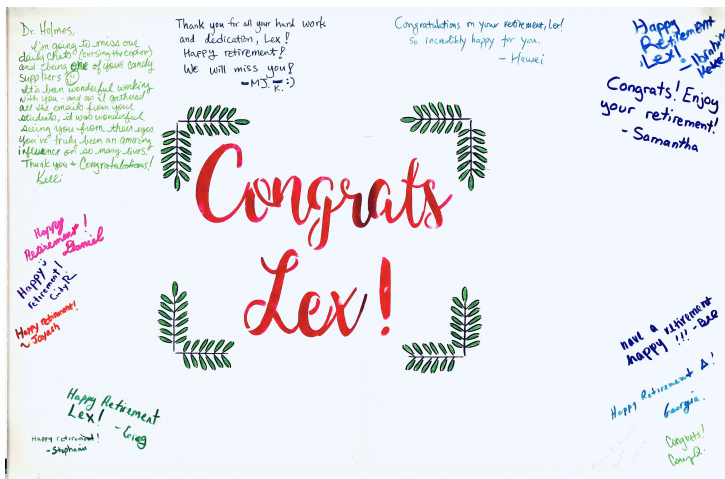 Dr. Holmes,
I'm going to miss our
daily chats (cursing the copier)
and being one of your candy
suppliers
It's been wonderful working
with you - and as I gathered
all the emails from your
students, it was wonderful
seeing you from their eyes
You've truly been an amazing
influence on so many lives!
Thank you + Congratulations!
Kelli
Thank you for all your hard work
and dedication, Lex!
Happy retirement!
We will miss you!
- MJ. K. :)
Congratulations on your retirement, Lex!
So incredibly happy for you.
Happy
Retirement
Lex!
- Ibrahim
Congrats! Enjoy
your retirement!
- Samantha
Congrats
Lex!
Happy
Retirement!
Daniel
Happy
retirement!
Happy retirement!
~ Jayash
Happy Retirement
Lex!
- Greg
Happy retirement!
- Stephanie
have a retirement
happy !!! - Bee
Happy Retirement
Georgia.
Congrats!